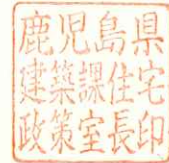 鹿児島県
建築課住宅
政策室長印